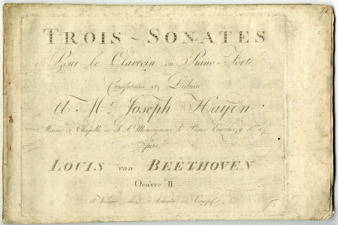 TROIS ~ SONATES
Pour le Clavecin ou Piano-Forte
Composées et Dediées
A Mr. Joseph Haydn
Maitre de Chapelle de S. A. Monseigneur le Prince Esterhazy
par
LOUIS van BEETHOVEN
Oeuvre II
à Vienne chez Artaria et Comp.